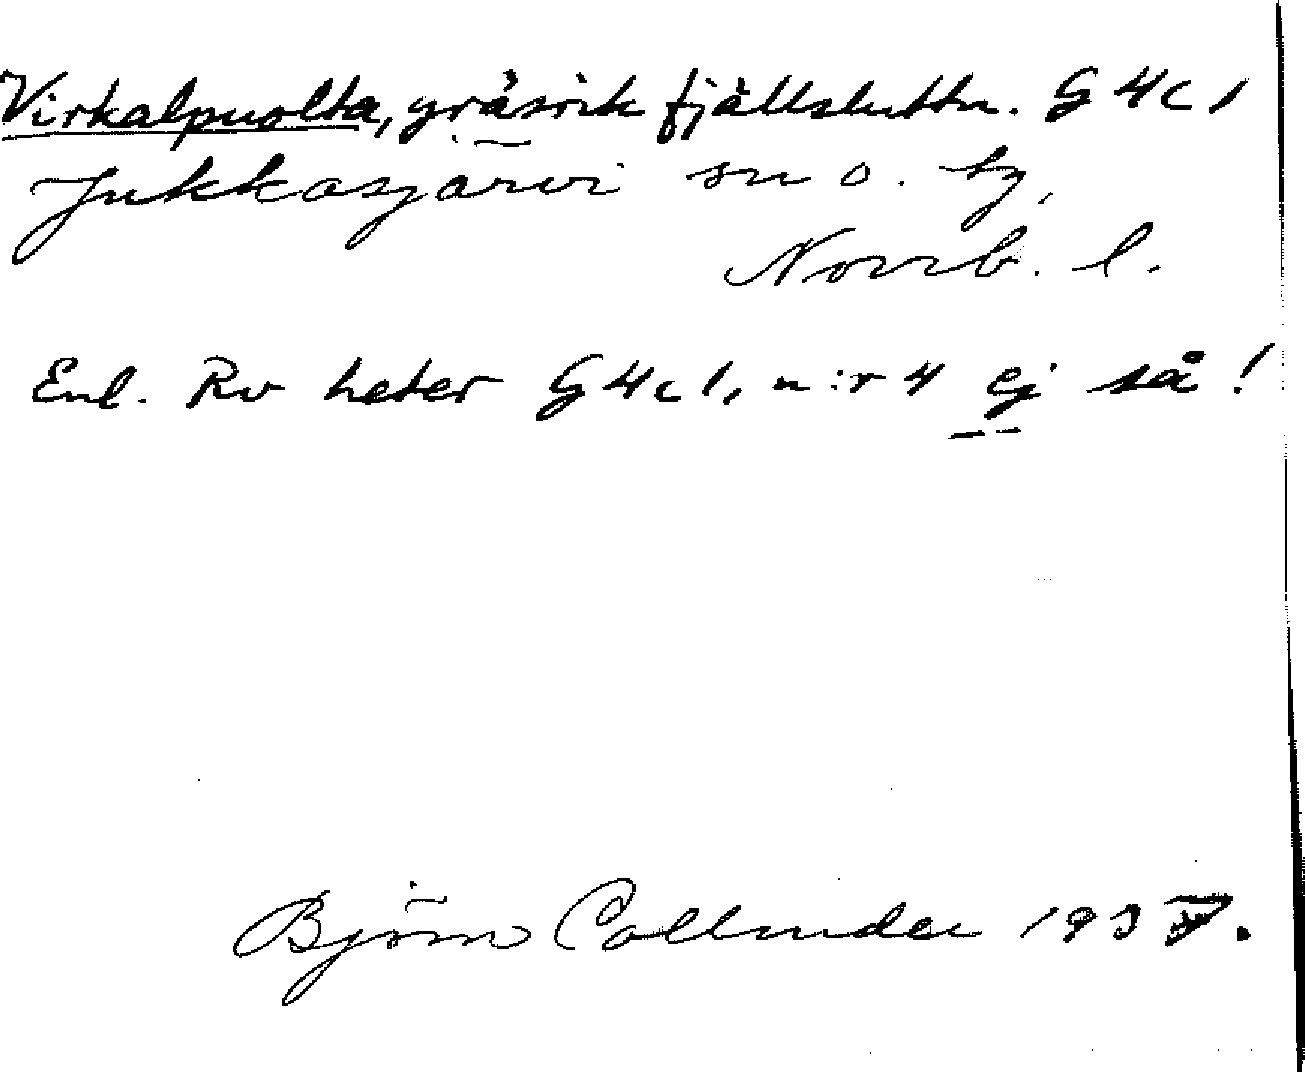 Virkalpuolta, gräsrik fjällsluttn. G4c1
Jukkasjärvi sn o. by,
Norrb. l.
Enl. Rv heter G4c1, n:r 4 ej så!
Björn Collinder